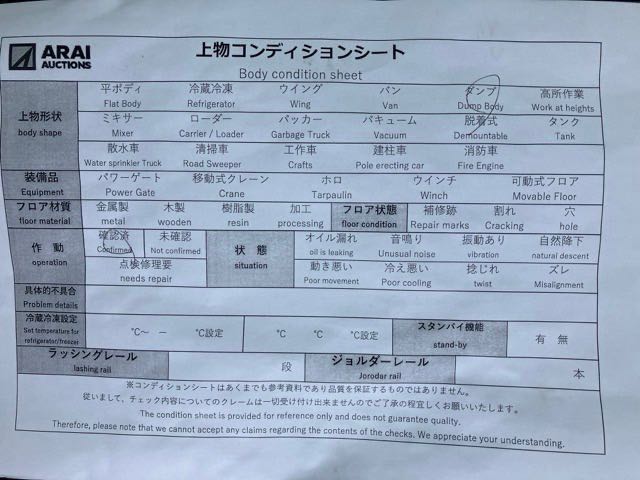 ARAI
AUCTIONS
上物コンディションシート
Body condition sheet
上物形状
body shape
平ボディ 冷蔵冷凍 ウイング バン ダンプ 高所作業
Flat Body Refrigerator Wing Van Dump Body Work at heights
ミキサー ローダー パッカー バキューム 脱着式 タンク
Mixer Carrier / Loader Garbage Truck Vacuum Demountable Tank
散水車 清掃車 工作車 建柱車 消防車
Water sprinkler Truck Road Sweeper Crafts Pole erecting car Fire Engine
装備品 パワーゲート 移動式クレーン ホロ ウインチ 可動式フロア
Equipment Power Gate Crane Tarpaulin Winch Movable Floor
フロア材質 金属製 木製 樹脂製 加工 フロア状態 補修跡 割れ 穴
floor material metal wooden resin processing floor condition Repair marks Cracking hole
作動
operation
確認済 未確認
Confirmed Not confirmed
点検修理要
needs repair
状態
situation
オイル漏れ 音鳴り 振動あり 自然降下
oil is leaking Unusual noise vibration natural descent
動き悪い 冷え悪い 捻じれ ズレ
Poor movement Poor cooling twist Misalignment
具体的不具合
Problem details
冷蔵冷凍設定
Set temperature for
refrigerator/freezer
℃〜 ー ℃設定 ℃ ℃ ℃設定
スタンバイ機能
stand-by
有 無
ラッシングレール 段 ジョルダーレール 本
lashing rail Jorodar rail
※コンディションシートはあくまでも参考資料であり品質を保証するものではありません。
従いまして、チェック内容についてのクレームは一切受け付け出来ませんのでご了承の程宜しくお願いいたします。
The condition sheet is provided for reference only and does not guarantee quality.
Therefore, please note that we cannot accept any claims regarding the contents of the checks. We appreciate your understanding.